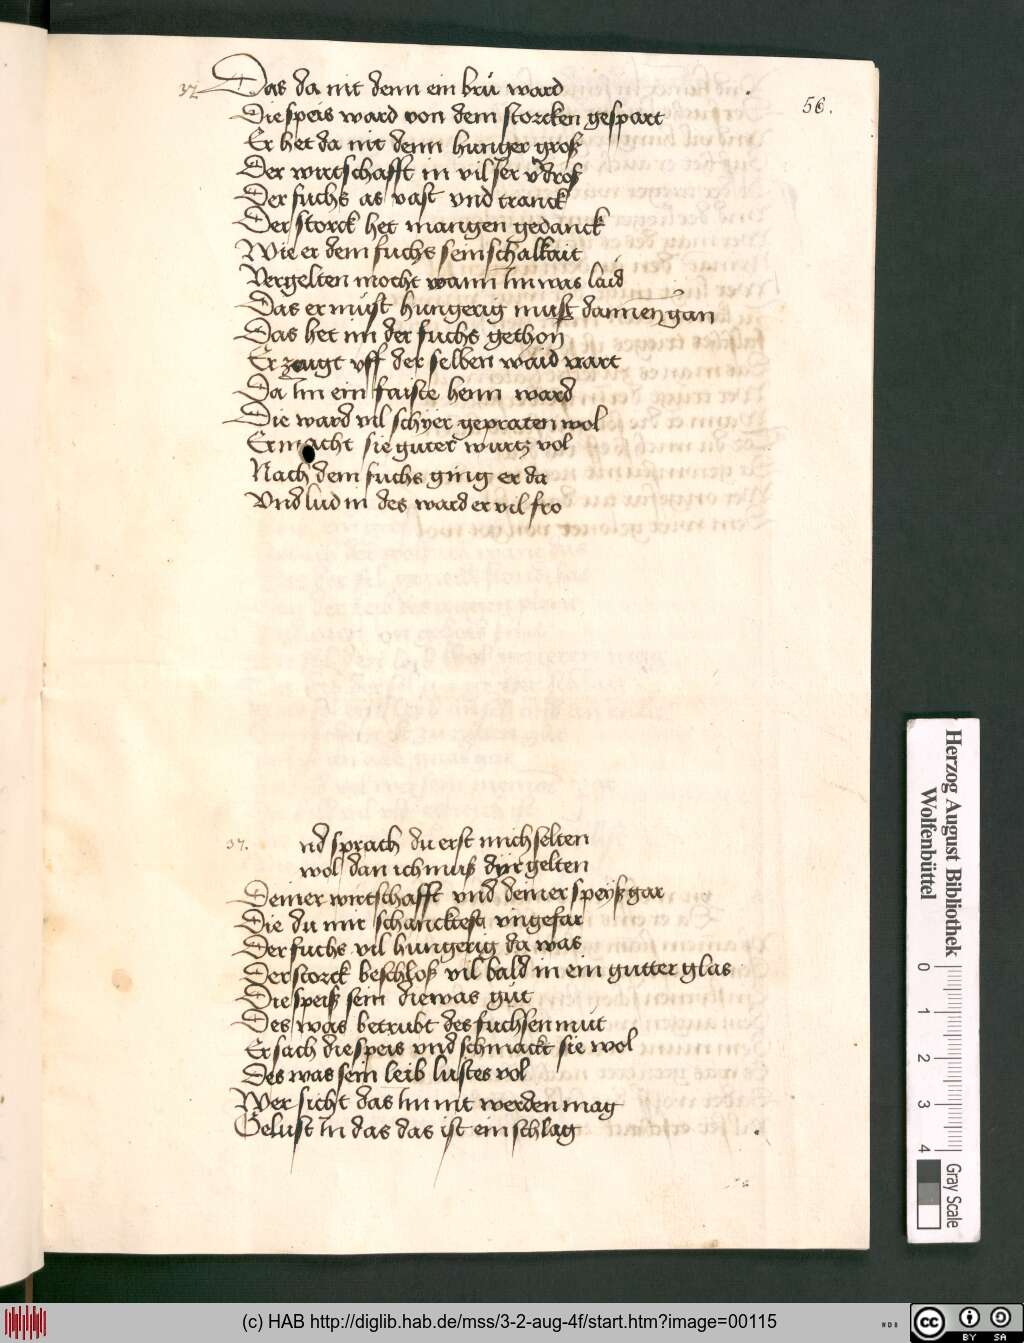 56.
37 Das da nit denn ein brü ward
Die speis ward von dem storcken gespart
Er het da nit denn hunger groß
Der wirtschafft in vil ser vdroß
Der fuchs as vast vnd tranck
Der storck het mangen gedanck
Wie er dem fuchs sein schalkait
Vergelten mocht wann im was laid
Das er müst hungerig must dannen gan
Das het im der fuchs gethon
Er zougt vff der selben waid vart
Da im ein faiste henn ward
Die ward vil schyer gepraten wol
Er macht sie guter wurtz vol
Nach dem fuchs ging er da
Vnd lud in des ward er vil fro
37. nd sprach du erst mich selten
wol dan ich muß dyr gelten
Deiner wirtschafft vnd deiner speyß gar
Die du mir schancktest vngefar
Der fuchs vil hungerig da was
Der storck beschloß vil bald in ein gutter glas
Die speiß sein die was güt
Des was betrubt des fuchsen müt
Er sach die speis vnd schmackt sie wol
Des was sein leib lustes vol
Wer sicht das im nit werden mag
Gelust in das das ist ein schlag
Herzog August Bibliothek
Wolfenbüttel
0 1 2 3 4
Gray Scale
(c) HAB http://diglib.hab.de/mss/3-2-aug-4f/start.htm?image=00115
WDB
cc BY SA